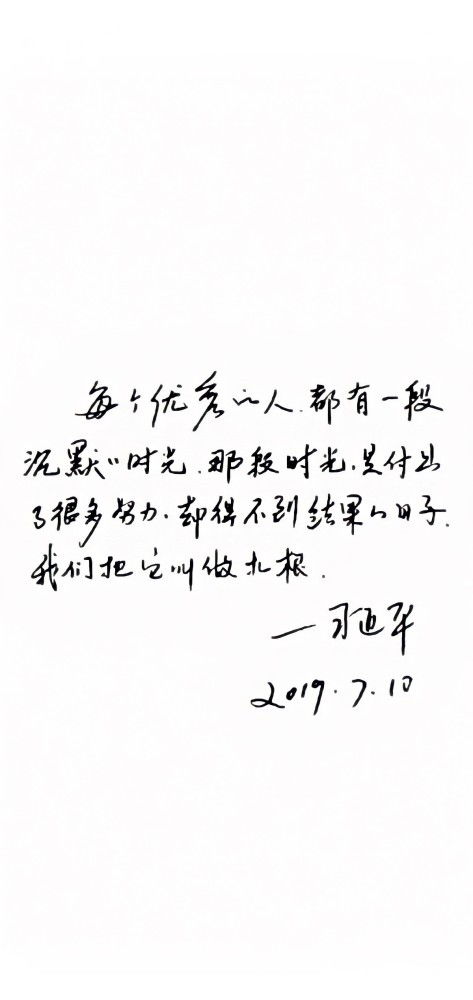 每个优秀的人.都有一段
沉默的时光.那段时光.是付出
了很多努力.却得不到结果的日子.
我们把它叫做扎根.
—
2019.7.10